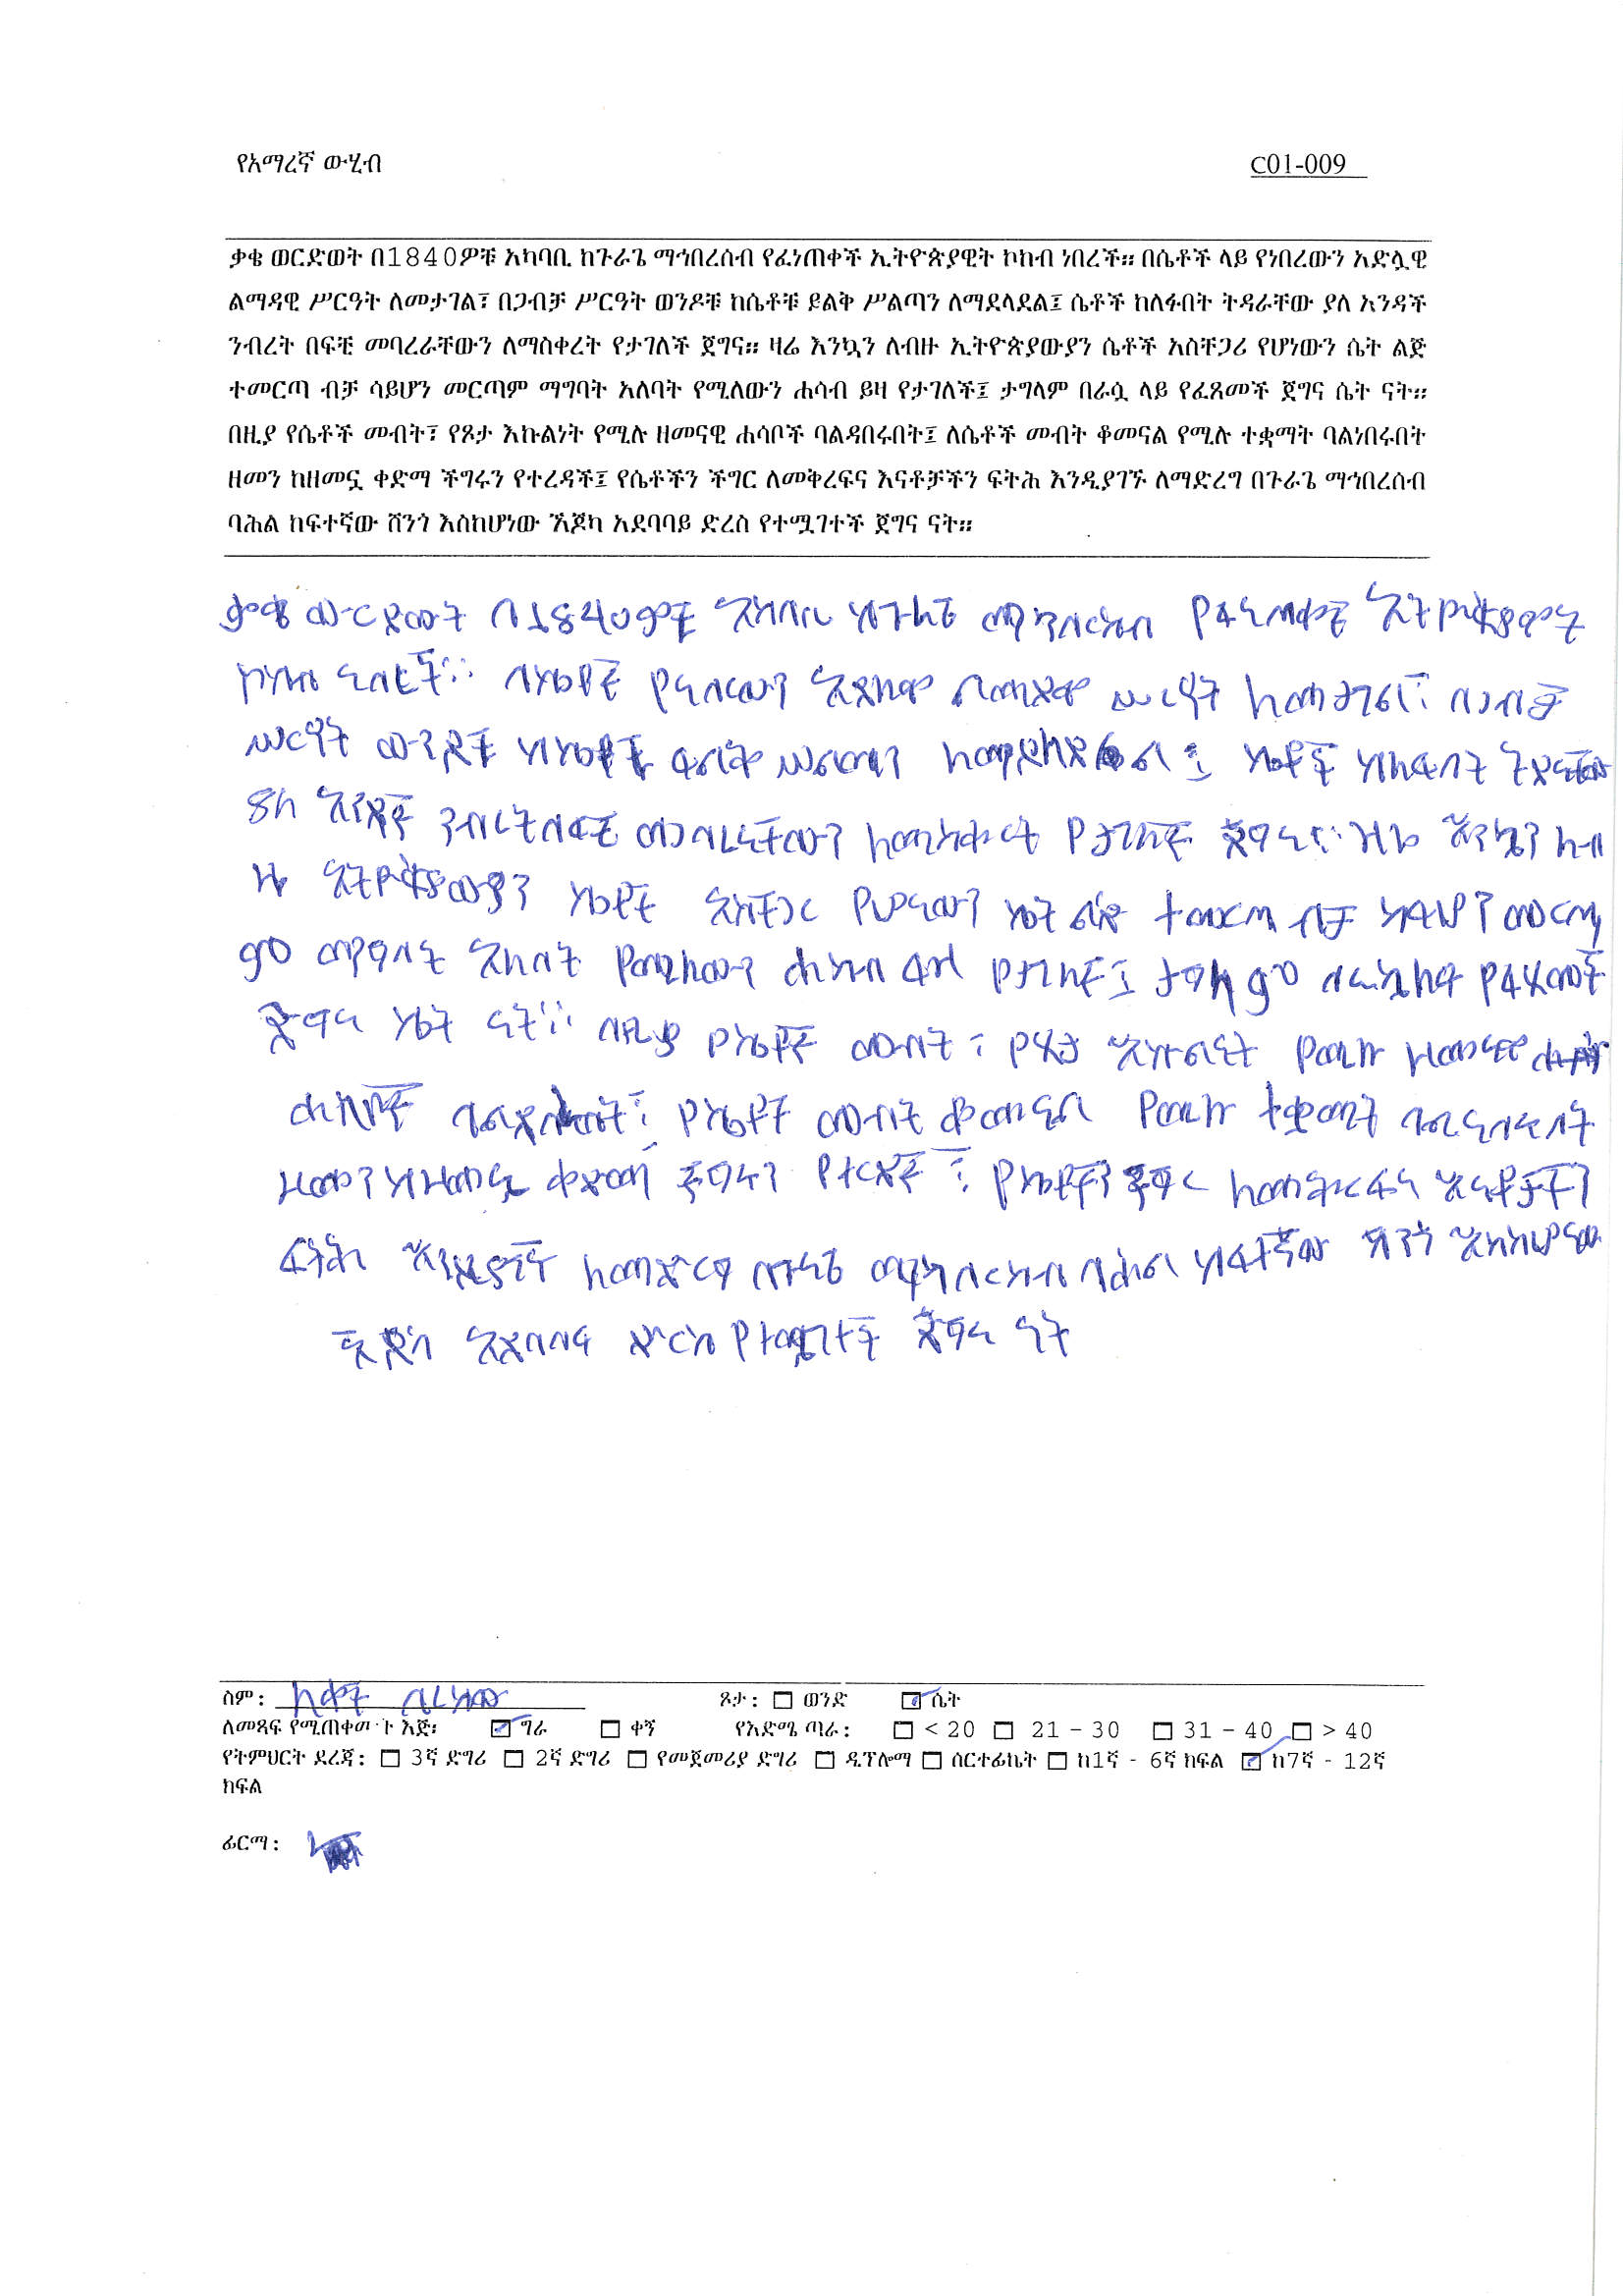 የአማረኛ ውሂብ
C01-009
ቃቄ ወርድወት በ1840ዎቹ አካባቢ ከጉራጌ ማኅበረሰብ የፈነጠቀች ኢትዮጵያዊት ኮከብ ነበረች። በሴቶች ላይ የነበረውን አድሏዊ
ልማዳዊ ሥርዓት ለመታገል፣ በጋብቻ ሥርዓት ወንዶቹ ከሴቶቹ ይልቅ ሥልጣን ለማደላደል፤ ሴቶች ከለፉበት ትዳራቸው ያለ አንዳች
ንብረት በፍቺ መባረራቸውን ለማስቀረት የታገለች ጀግና። ዛሬ እንኳን ለብዙ ኢትዮጵያውያን ሴቶች አስቸጋሪ የሆነውን ሴት ልጅ
ተመርጣ ብቻ ሳይሆን መርጣም ማግባት አለባት የሚለውን ሐሳብ ይዛ የታገለች፤ ታግላም በራሷ ላይ የፈጸመች ጀግና ሴት ናት።
በዚያ የሴቶች መብት፣ የጾታ እኩልነት የሚሉ ዘመናዊ ሐሳቦች ባልዳበሩበት፤ ለሴቶች መብት ቆመናል የሚሉ ተቋማት ባልነበሩበት
ዘመን ከዘመኗ ቀድማ ችግሩን የተረዳች፤ የሴቶችን ችግር ለመቅረፍና እናቶቻችን ፍትሕ እንዲያገኙ ለማድረግ በጉራጌ ማኅበረሰብ
ባሕል ከፍተኛው ሸንጎ እስከሆነው ኧጆካ አደባባይ ድረስ የተሟገተች ጀግና ናት።
ቃቄ ውርደወት በ፲፰፵ዎቹ አካባቢ ከጉራጌ ማኅበረሰብ የፈነጠቀች ኢትዮጵያዊት
ኮከብ ነበረች። በሴቶች የነበረውን አድሏዊ ልማዳዊ ሥርዓት ለመታገል፣ በጋብቻ
ሥርዓት ወንዶች ከሴቶቹ ይልቅ ሥልጣን ለማደላደል፤ ሴቶች ከለፉበት ትዳራቸው
ያለ አንዳች ንብረት በፍቺ መባረራቸውን ለማስቀረት የታገለች ጀግና። ዛሬ እንኳን ለብ
ዙ ኢትዮጵያውያን ሴቶች አስቸጋሪ የሆነውን ሴት ልጅ ተመርጣ ብቻ ሳይሆን መርጣ
ም ማግባት አለባት የሚለውን ሐሳብ ይዛ የታገለች፤ ታግላም በራሷ ላይ የፈጸመች
ጀግና ሴት ናት። በዚያ የሴቶች መብት፣ የጾታ እኩልነት የሚሉ ዘመናዊ
ሐሳቦች ባልዳበሩበት፤ የሴቶች መብት ቆመናል የሚሉ ተቋማት ባልነበሩበት
ዘመን ከዘመኗ ቀድማ ችግሩን የተርዳች፤ የሴቶችን ችግር ለመቅረፍና እናቶቻችን
ፍትሕ እንዲያገኙ ለማድረግ በጉራጌ ማኅበረሰብ ባሕል ከፍተኛው ሸንጎ እስከሆነው
ኧጆካ አደባባይ ድርስ የተሟገተች ጀግና ናት
ስም:
ጾታ: ወንድ ሴት
ለመጻፍ የሚጠቀሙት እጅ፡ ግራ ቀኝ የእድሜ ጣራ: < 20 21 - 30 31 - 40 > 40
የትምህርት ደረጃ: 3ኛ ድግሪ 2ኛ ድግሪ የመጀመሪያ ድግሪ ዲፕሎማ ሰርተፊኬት ከ1ኛ - 6ኛ ክፍል ከ7ኛ - 12ኛ
ክፍል
ፊርማ: